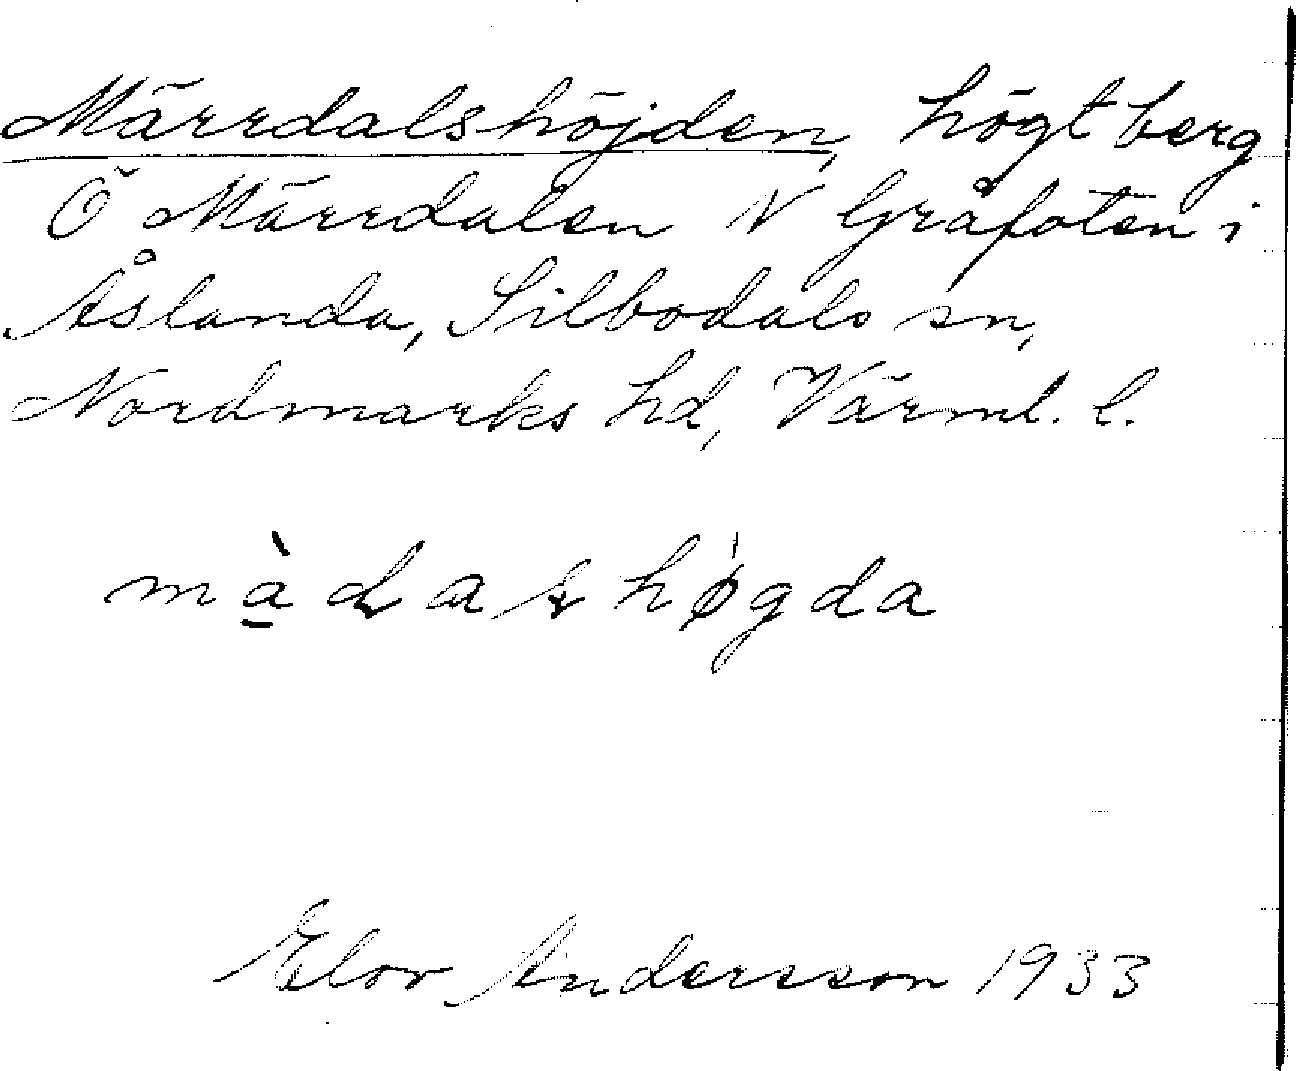 Märrdalshöjden, högt berg
Ö Märrdalen N Gråfoten i
Åslanda, Silbodals sn,
Nordmarks hd, Värml. l.
Elov Andersson 1933